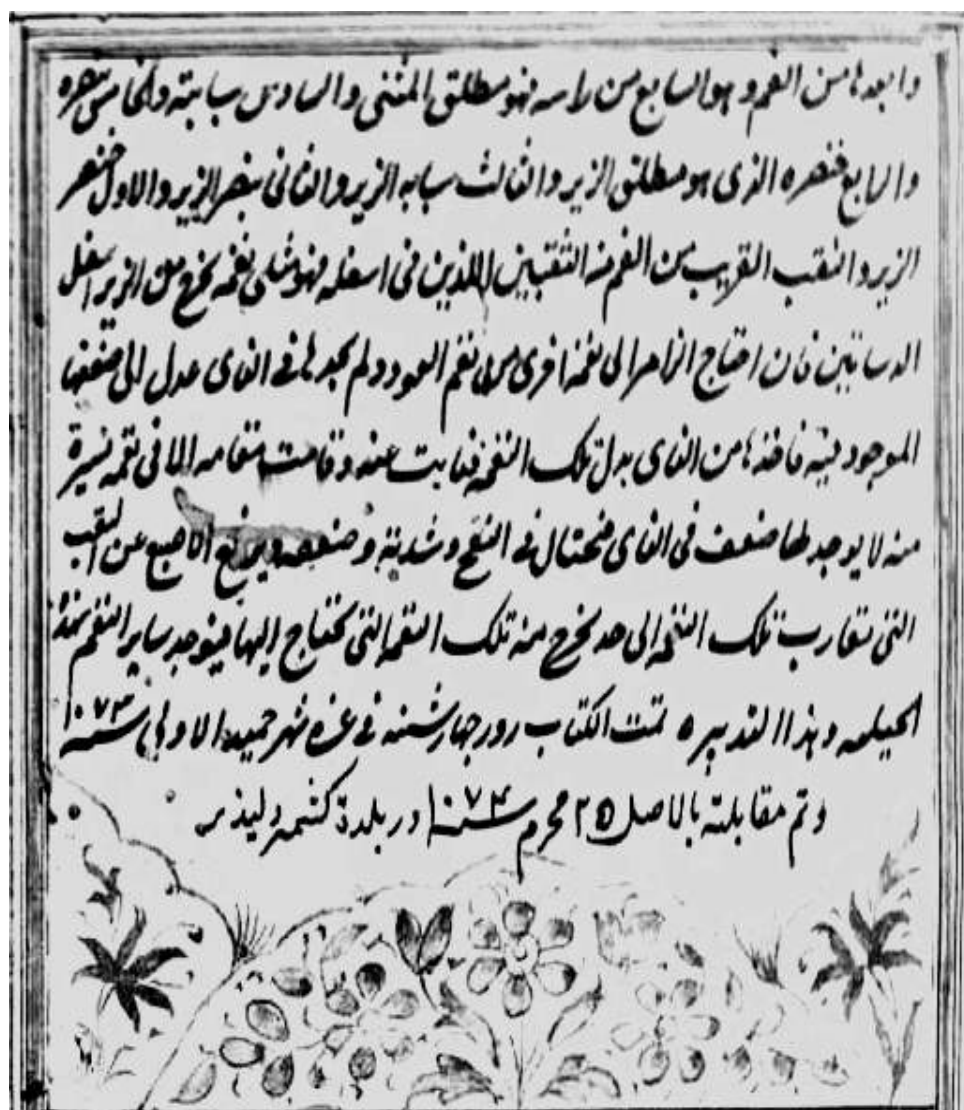 وابعدها من الفم وهو السابع من راسه فهو مطلق المثنى والسادس سبابته والخامس بنصره
والرابع خنصره الذى هو مطلق الزير والثالث سبابه الزير والثانى بنصر الزير والاول خنصر
الزير والثقب القريب من الفم من الثقبين اللذين فى اسفله فهو مثل نغمه تخرج من الزير اسفل
الدساتين فان احتاج الزامر الى نغمة اخرى من نغم العود ولم يجدها فى الناى عدل الى ضعفها
الموجود فيه فاخذها من الناى بدل تلك النغمه فنابت عنه وقامت مقامه الا فى نغمه يسيرة
منه لا يوجد لها ضعف فى الناى فيحتال فى النفخ وشدته وضعفه ويرفع الاصبع عن الثقب
التى تقارب تلك النغمه الى حد تخرج منه تلك النغمه التى تحتاج اليها فيوجد ساير النغم بهذه
الحيله وهذا التدبيره تمت الكتاب روز چهارشنبه فى غره شهر جميد الاولى سنه ١٠٧٣
وتم مقابلته بالاصل ٢٥ محرم سنه ١٠٧٤ در بلدة كشمير دلپذير